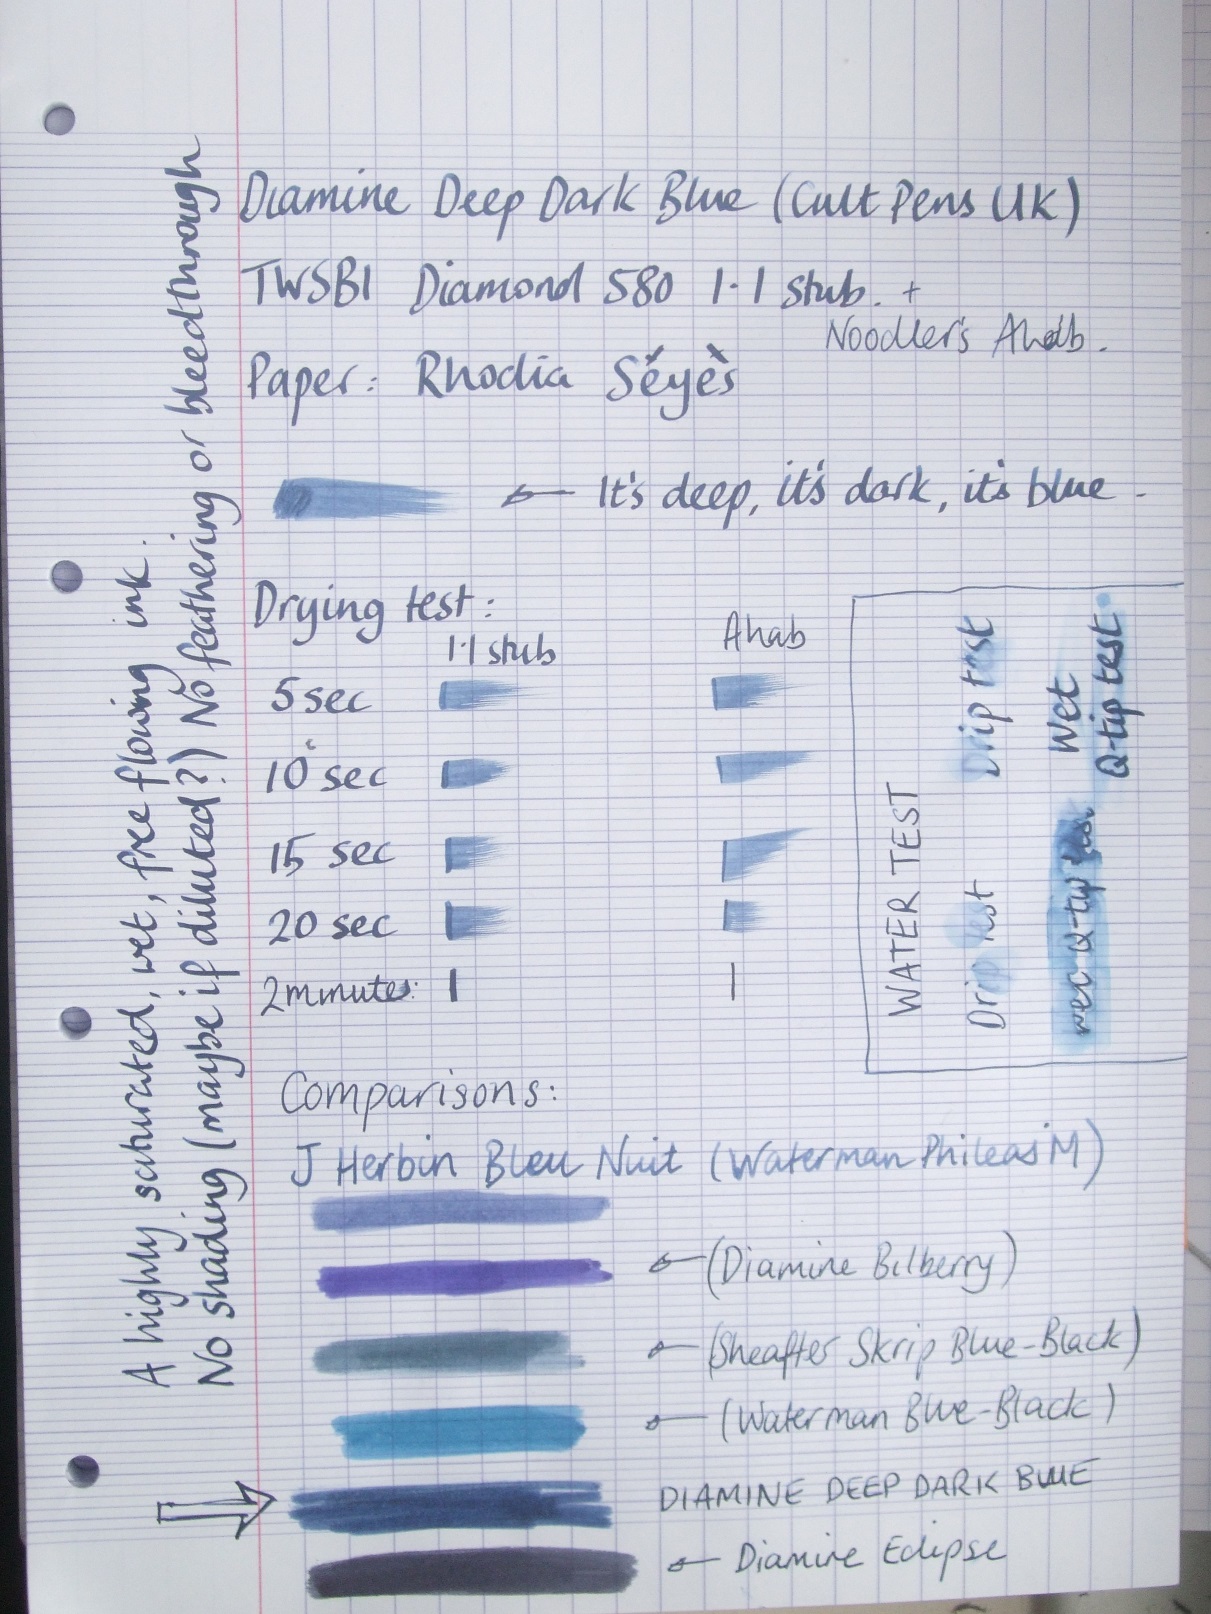 Diamine Deep Dark Blue (Cult Pens UK)
TWSBI Diamond 580 1.1 stub. +
Noodler's Ahab.
Paper: Rhodia Séyès
It's deep, it's dark, it's blue.
Drying test:
1.1 stub Ahab
5 sec
10 sec
15 sec
20 sec
2 minutes:
WATER TEST
Drip test Drip test
Wet Q-tip test
Wet
Q-tip test
Comparisons:
J Herbin Bleu Nuit (Waterman Phileas M)
(Diamine Bilberry)
(Sheaffer Skrip Blue-Black)
(Waterman Blue-Black)
DIAMINE DEEP DARK BLUE
Diamine Eclipse
A highly saturated, wet, free flowing ink.
No shading (maybe if diluted?) No feathering or bleedthrough